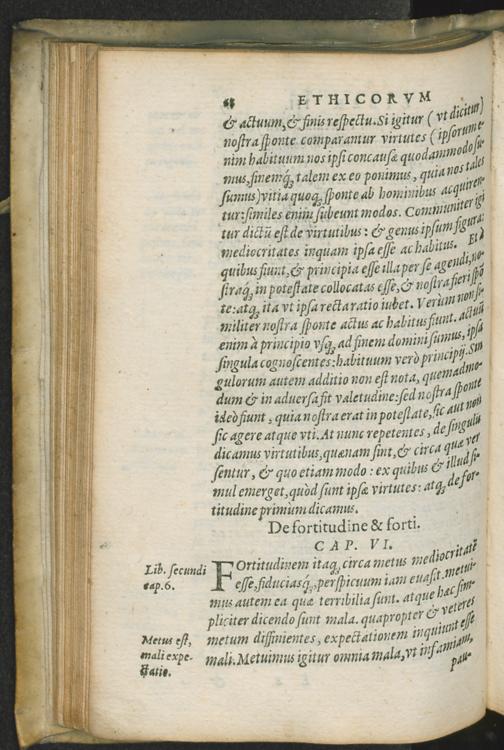 68 ETHICORVM
& actuum, & finis respectu. Si igitur ( vt dicitur)
nostra sponte comparantur virtutes ( ipsorum e-
nim habituum nos ipsi concausæ quodammodo su-
mus, finemq́; talem ex eo ponimus, quia nos tales
sumus) vitia quoq; sponte ab hominibus acquiren-
tur: similes enim subeunt modos. Communiter igi
tur dictũ est de virtutibus: & genus ipsum figura:
mediocritates inquam ipsa esse ac habitus. Et à
quibus fiunt, & principia esse illa per se agendi, no-
straq́; in potestate collocatas esse, & nostra fieri spõ
te: atq; ita vt ipsa recta ratio iubet. Verùm non si-
militer nostra sponte actus ac habitus fiunt. actuũ
enim à principio vsq; ad finem domini sumus, ipsa
singula cognoscentes: habituum verò principij. Sin
gulorum autem additio non est nota, quemadmo-
dum & in aduersa fit valetudine: sed nostra sponte
ideò fiunt, quia nostra erat in potestate, sic aut non
sic agere atque vti. At nunc repetentes, de singulis
dicamus virtutibus, quænam sint, & circa quæ ver
sentur, & quo etiam modo: ex quibus & illud si-
mul emerget, quòd sunt ipsæ virtutes: atq; de for-
titudine primum dicamus.
De fortitudine & forti.
CAP. VI.
Lib. secundi
cap. 6.
FOrtitudinem itaq; circa metus mediocritatē
esse, fiduciasq́; perspicuum iam euasit. metui-
mus autem ea quæ terribilia sunt. atque hæc sim-
pliciter dicendo sunt mala. quapropter & veteres
Metus est,
mali expe-
ctatio.
metum diffinientes, expectationem inquiunt esse
mali. Metuimus igitur omnia mala, vt infamiam,
pau-